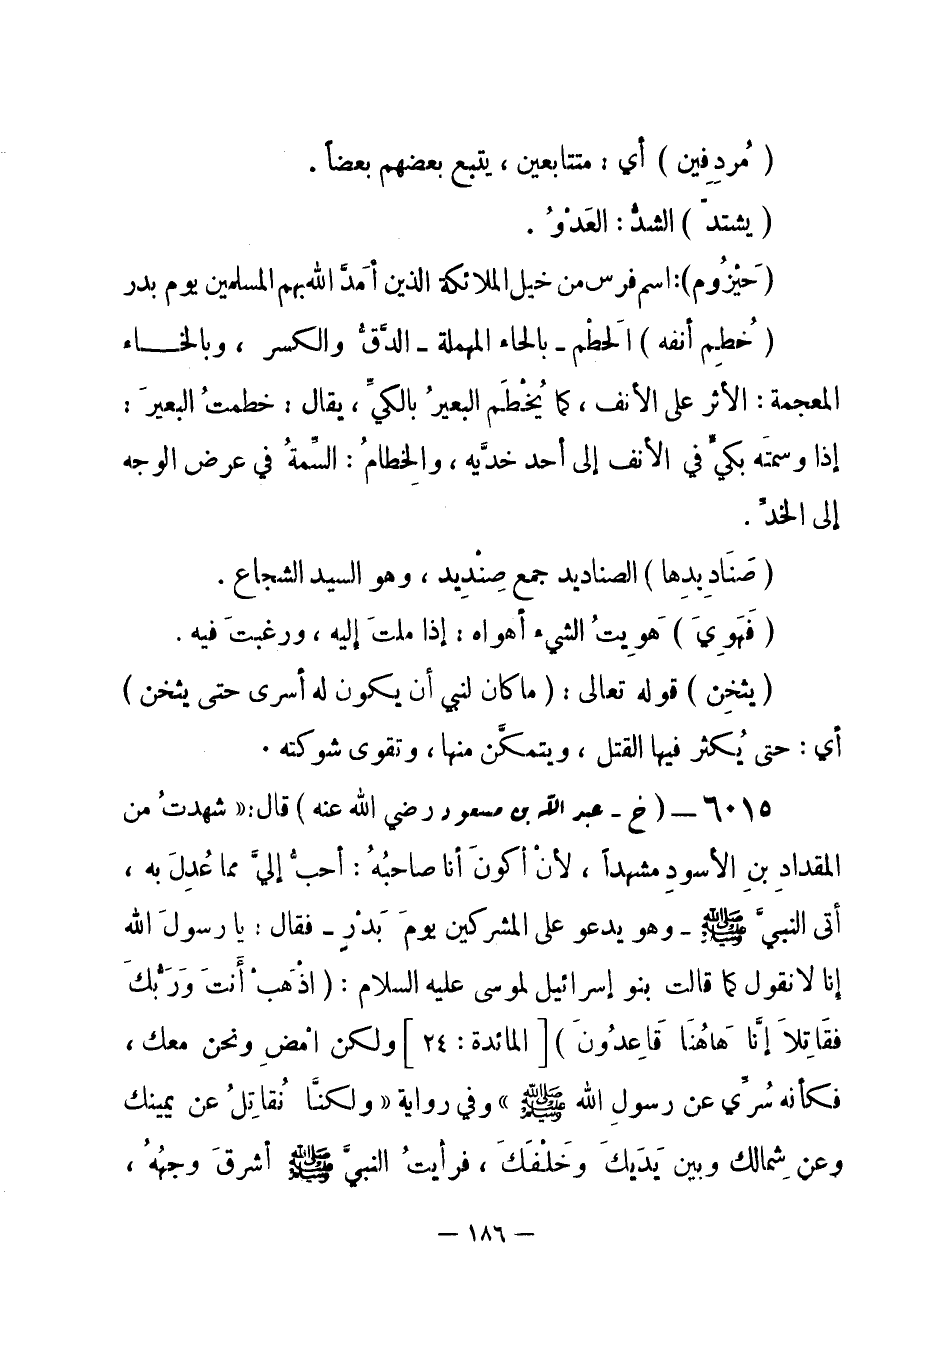 ( مُردِفين ) أي : متتابعين ، يتبع بعضهم بعضاً .
( يشتدّ ) الشدُّ : العَدْوُ .
( حَيْزُوم ): اسم فرس من خيل الملائكة الذين أمَدَّ الله بهم المسلمين يوم بدر
( خُطِم أنفه ) الحَطْم ـ بالحاء المهملة ـ الدَّقُّ والكسر ، وبالخــــاء
المعجمة : الأثر على الأنف ، كما يُخْطَم البعيرُ بالكيِّ ، يقال : خطمتُ البعيرَ :
إذا وسمتَه بكيٍّ في الأنف إلى أحد خدَّيه ، والخِطامُ : السِّمةُ في عرض الوجه
إلى الخدّ .
( صَنَادِيدِها ) الصناديد جمع صِنْدِيد ، وهو السيد الشجاع .
( فَهَوِيَ ) هَوِيتُ الشيء أهواه : إذا ملتَ إليه ، ورغبتَ فيه .
( يثخِن ) قوله تعالى : ( ما كان لنبي أن يكون له أسرى حتى يثخن )
أي : حتى يُكثر فيها القتل ، ويتمكَّن منها ، وتقوى شوكته .
٦٠١٥ ــ ( خ ـ عبد الله بن مسعود رضي الله عنه ) قال : « شهدتُ من
المقدادِ بنِ الأسودِ مشهداً ، لأنْ أكونَ أنا صاحبُهُ : أحبُّ إليَّ مما عُدِلَ به ،
أتى النبيَّ ﷺ ـ وهو يدعو على المشركين يومَ بَدْرٍ ـ فقال : يا رسولَ الله
إنا لا نقول كما قالت بنو إسرائيل لموسى عليه السلام : ( اذْهَبْ أَنتَ وَرَبُّكَ
فقَاتِلاَ إنَّا هَاهُنَا قَاعِدُونَ ) [ المائدة : ٢٤ ] ولكن امْضِ ونحن معك ،
فكأنه سُرِّي عن رسولِ الله ﷺ » وفي رواية « ولكنَّا نُقاتِلُ عن يمينك
وعن شِمالك وبين يَدَيكَ وخَلْفَكَ ، فرأيتُ النبيَّ ﷺ أشرقَ وجهُهُ ،
— ١٨٦ —